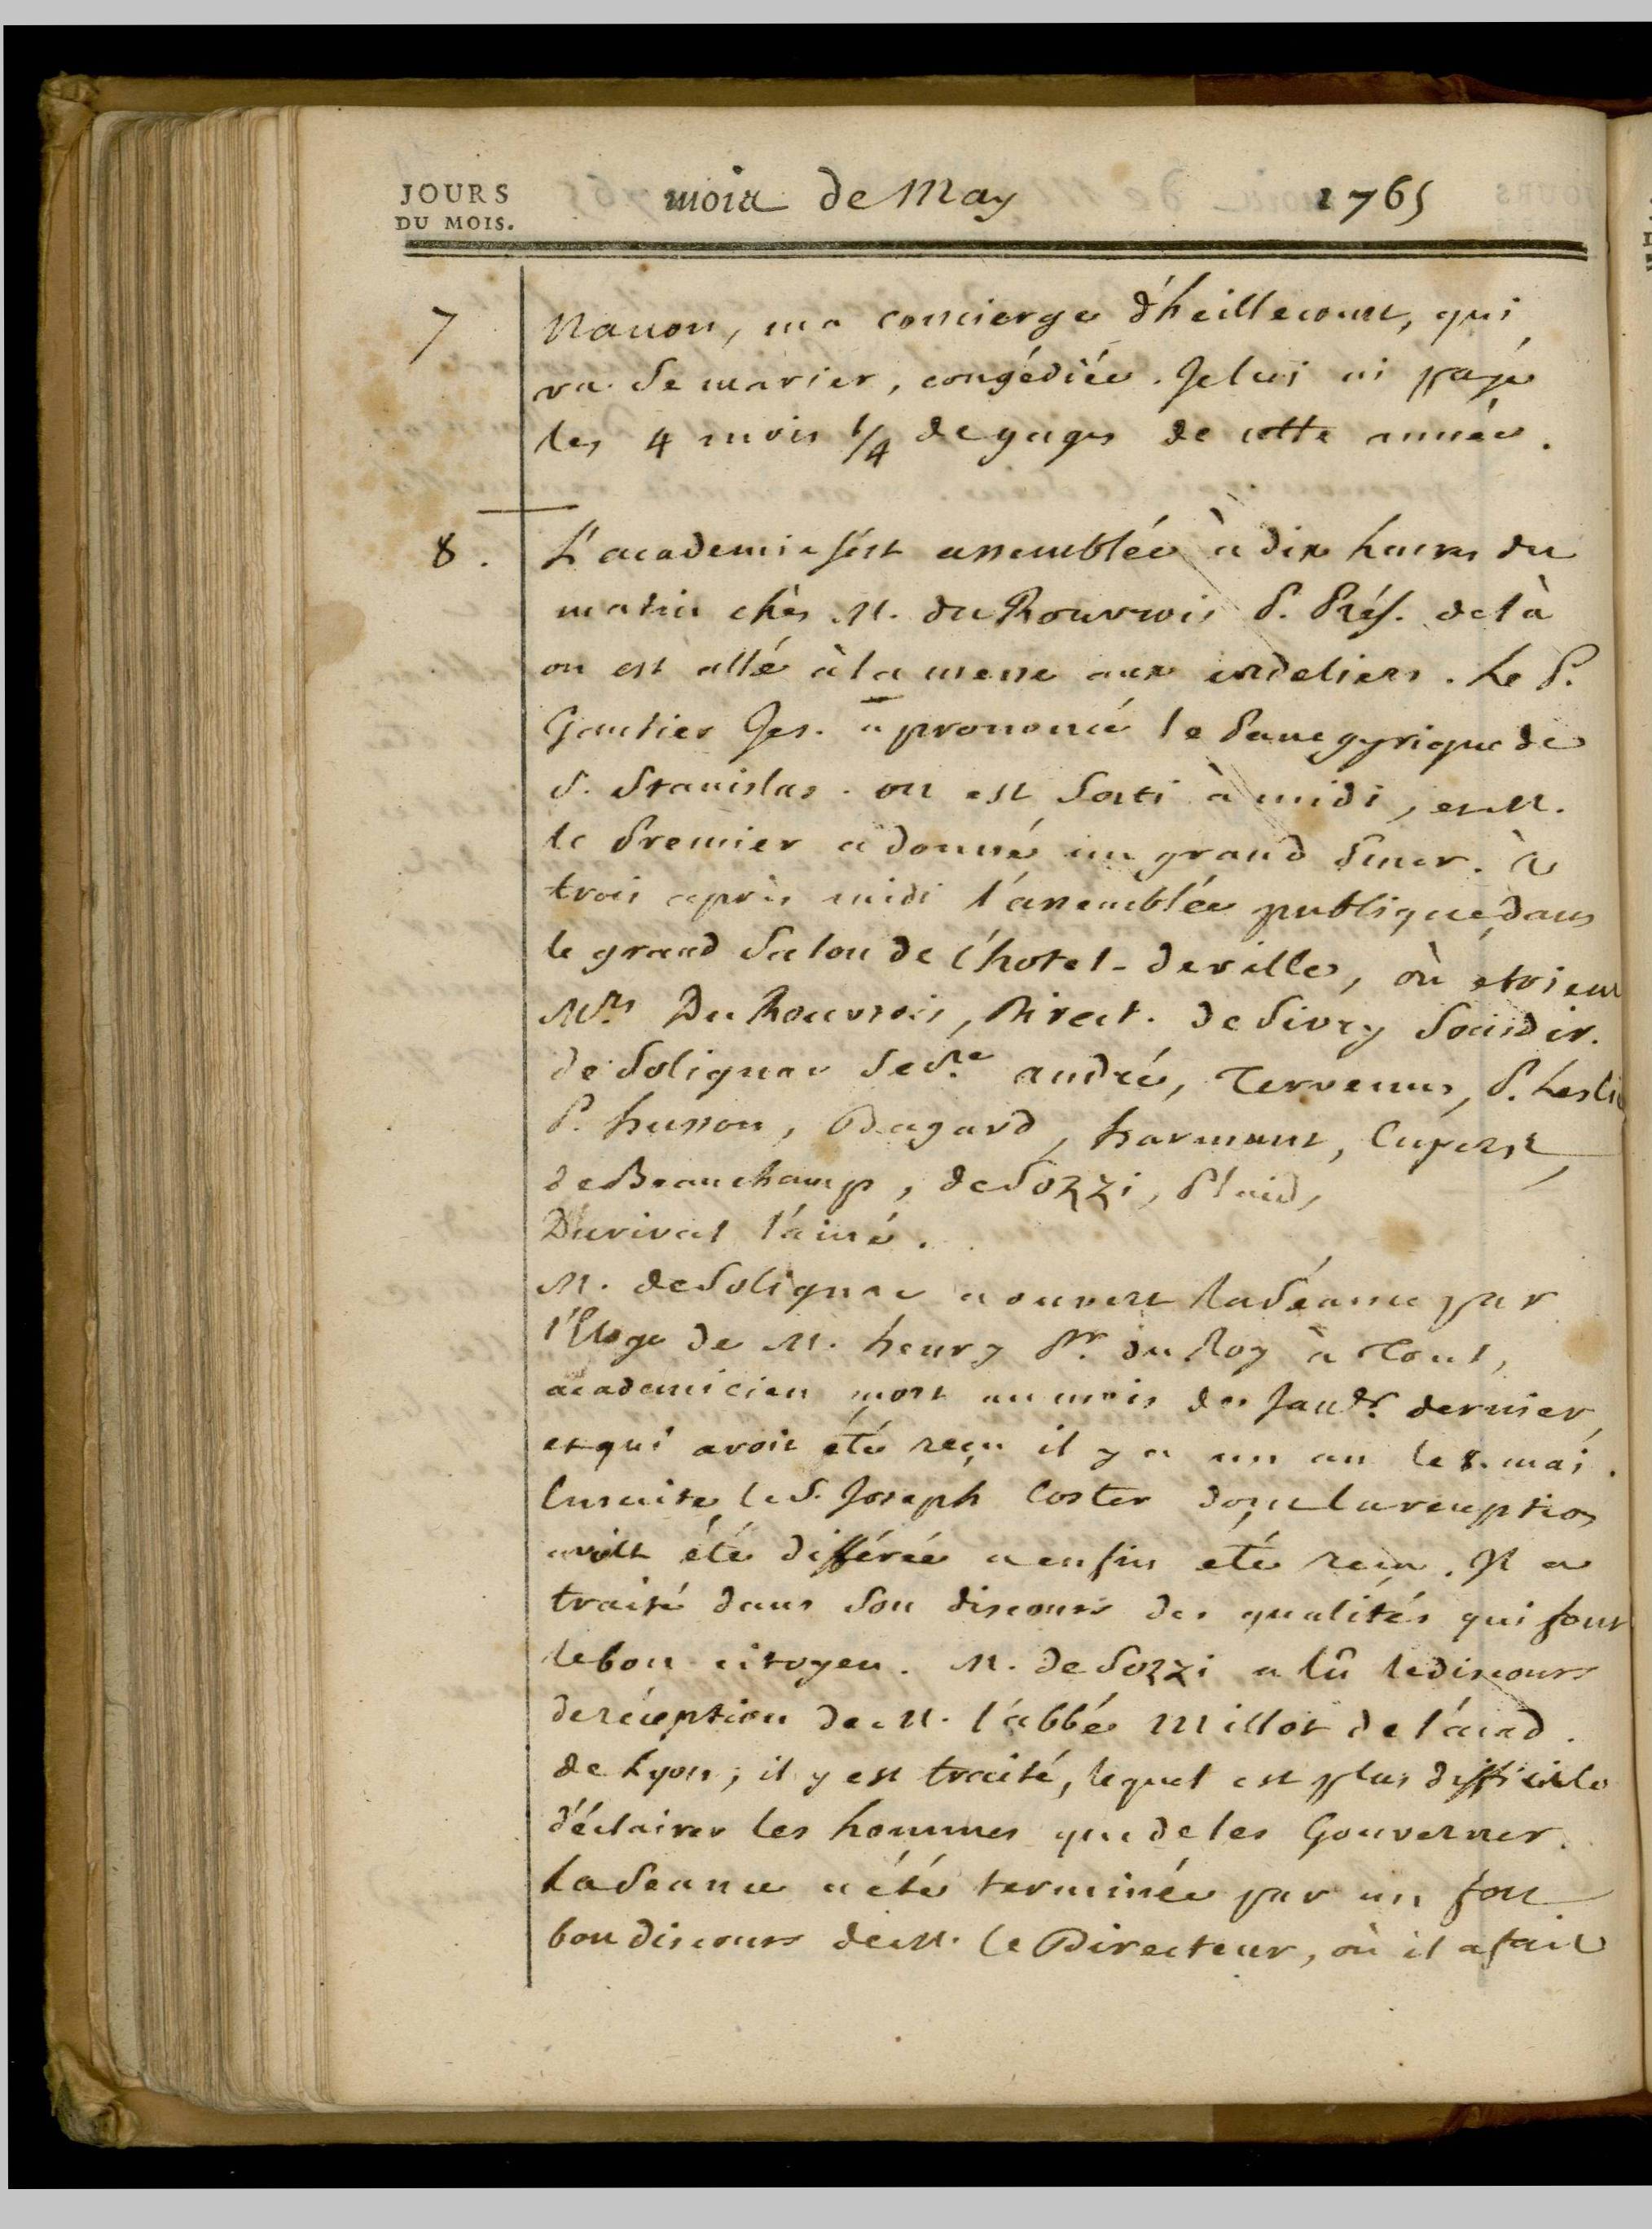 JOURS
DU MOIS.
mois de May 1765
7 Nanon, ma concierge d'heillecourt, qui
va se marier, congédiée. Je lui ai payé
les 4 mois 1/4 de gages de cette année.
8. L'academie s'est assemblée à dix heures du
matin chès M. du Rouvrois P. Prés. de là
on est allé à la messe aux cordeliers. Le P.
Gautier Jes. a prononcé le Panegyrique de
S. Stanislas. on est sorti à midi, et M.
le Premier a donné un grand diner. à
trois après midi l'assemblée publique, dans
le grand salon de l'hotel-de ville, où étoient
Mrs. Du Rouvrois, Direct. de Sivry sousdir.
de Solignac Secre. André, Tervenus, P. Leslie
P. husson, Bagard, harmant, Cupers,
de Beauchamp, de Sozzi, Plaid,
Durival l'ainé.
M. de Solignac a ouvert la séance par
l'Eloge de M. henry Pr. du Roy à Toul,
academicien mort au mois de Janvr. dernier,
et qui avoit été reçu il y a un an le 8. mai.
Ensuite, le S. Joseph Coster dont la reception
avoit été différée a enfin été reçu. Il a
traité dans son discours des qualités qui font
le bon citoyen. M. de Sozzi a lû le discours
de réception de M. l'abbé Millot de l'acad.
de Lyon; il y est traité, lequel est plus difficile
d'éclairer les hommes que de les Gouverner.
La Seance a été terminée par un fort
bon discours de M. le Directeur, où il a fait